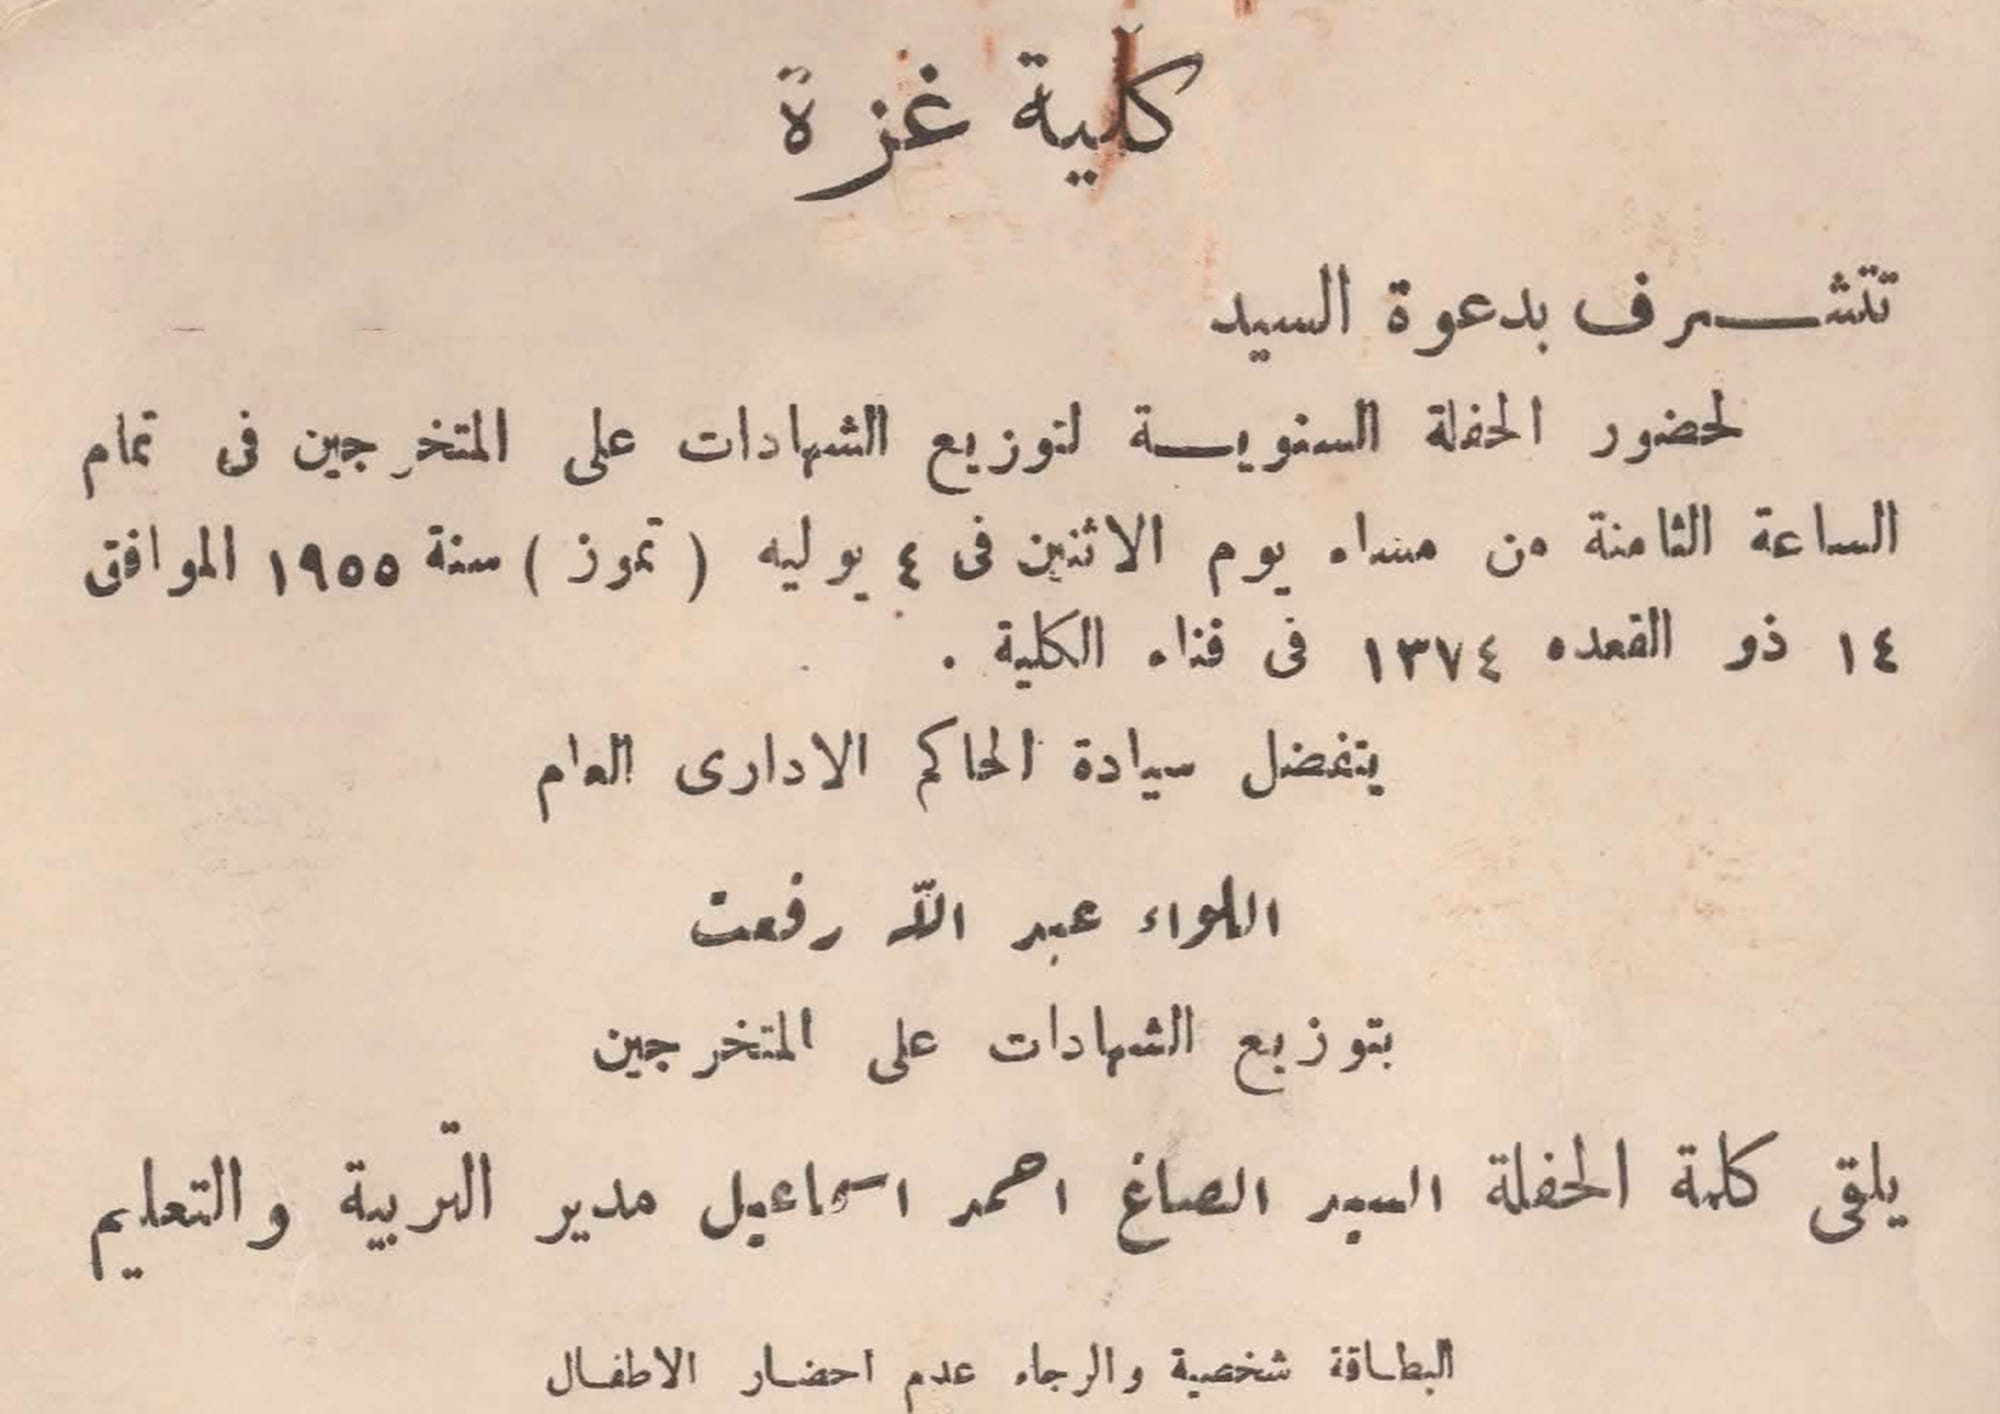 كلية غزة
تتشرف بدعوة السيد
لحضور الحفلة السنوية لتوزيع الشهادات على المتخرجين فى تمام
الساعة الثامنة من مساء يوم الاثنين فى ٤ يوليه ( تموز ) سنة ١٩٥٥ الموافق
١٤ ذو القعده ١٣٧٤ فى فناء الكلية .
يتفضل سيادة الحاكم الادارى العام
اللواء عبد الله رفعت
بتوزيع الشهادات على المتخرجين
يلقى كلمة الحفلة السيد الصاغ احمد اسماعيل مدير التربية والتعليم
البطاقة شخصية والرجاء عدم احضار الاطفال